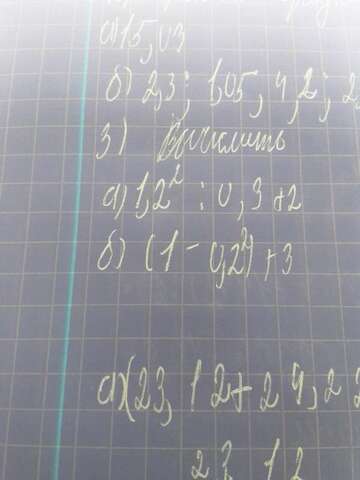 а) 15,03
б) 2,3; 1,05, 4,2; 2
3) Вычислить
а) 1,2² : 0,3+2
б) (1 - 0,2²) + 3
а) (23,12+24,2
23,12